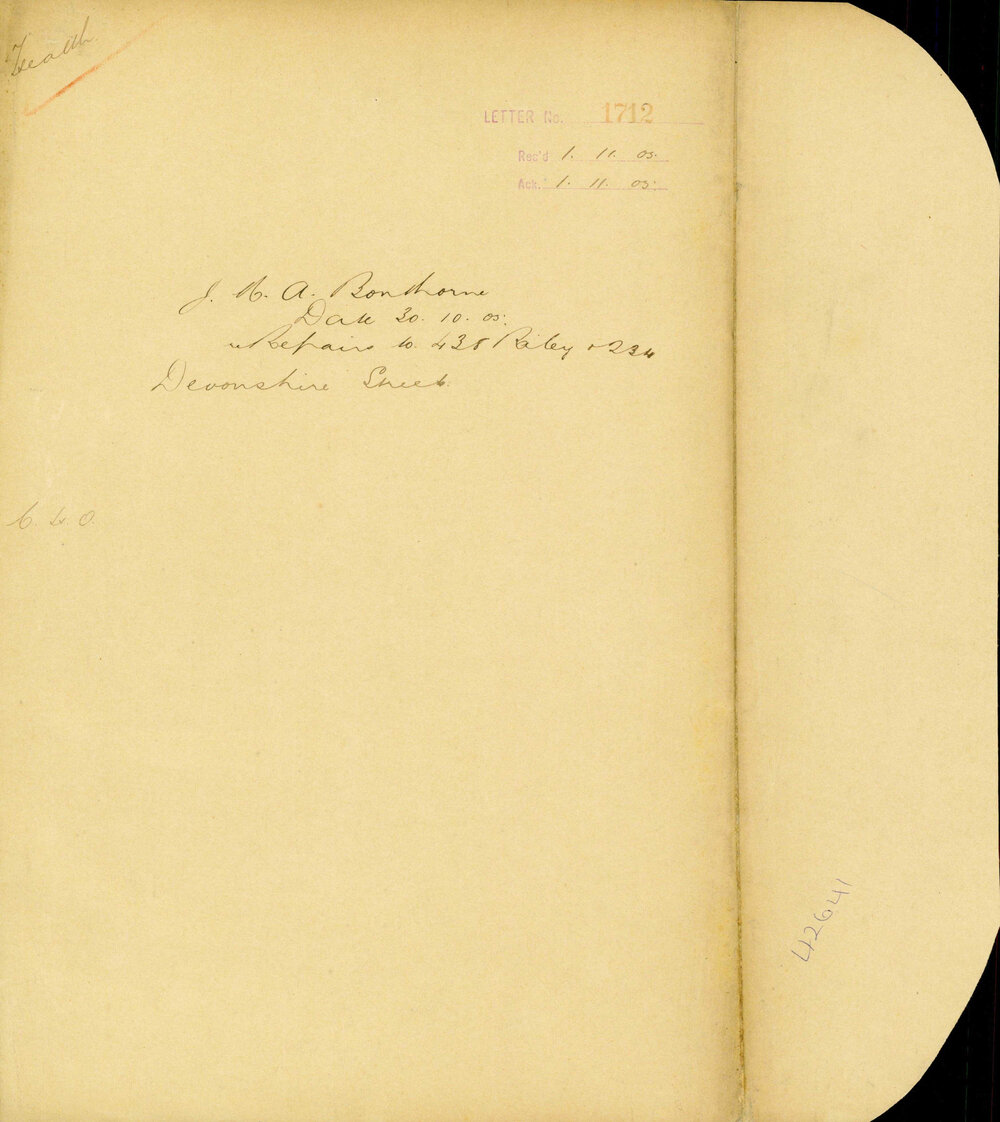 Health
LETTER No. 1712
Rec'd 1. 11. 05.
Ack. 1. 11. 05.
J. H. A. Bonthorne
Date 30. 10. 05.
re Repairs to 438 Riley & 234
Devonshire Street.
C. H. O.
42641